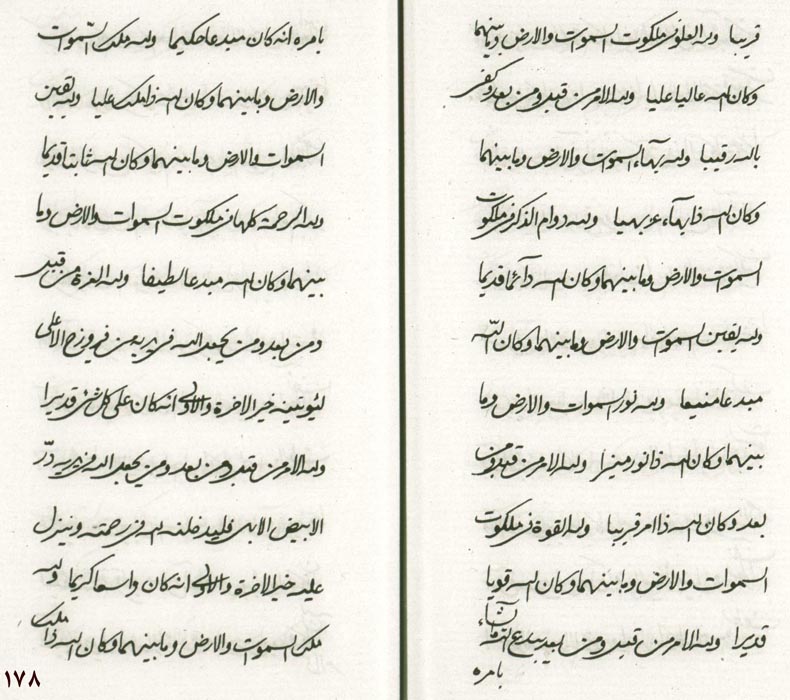 قريبا ولله العلو في ملكوت السموات والارض وما بينهما
وكان الله عاليا عليا ولله الامر من قبل ومن بعد وكفى
بالله رقيبا ولله بهاء السموات والارض وما بينهما
وكان الله ذا بهاء عز بهيا ولله دوام الذكر في ملكوت
السموات والارض وما بينهما وكان الله دآئما قديما
ولله يقين السموات والارض وما بينهما وكان الله
مبدعا منيعا ولله نور السموات والارض وما
بينهما وكان الله ذا نور منيرا ولله الامر من قبل ومن
بعد وكان الله ذا امر قريبا ولله القوة في ملكوت
السموات والارض وما بينهما وكان الله قويا
قديرا ولله الامر من قبل ومن بعد يبدع
بامره
بامره انه كان مبدعا حكيما ولله ملك السموات
والارض وما بينهما وكان الله ذا ملك عليا ولله يقين
السموات والارض وما بينهما وكان الله ثابتا قديما
ولله الرحمة كلها في ملكوت السموات والارض وما
بينهما وكان الله مبدعا لطيفا ولله العزة من قبل
ومن بعد ومن يجعل الله الاعلى
ليؤتينه خير الاخرة والاولى انه كان على كل شئ قديرا
ولله الامر من قبل ومن بعد ومن يجعل الله در
الابيض فليدخلنه الله في رحمته ولينزل
عليه خير الاخرة والاولى انه كان واسعا كريما ولله
ملك السموات والارض وما بينهما وكان الله ذا ملك
١٧٨